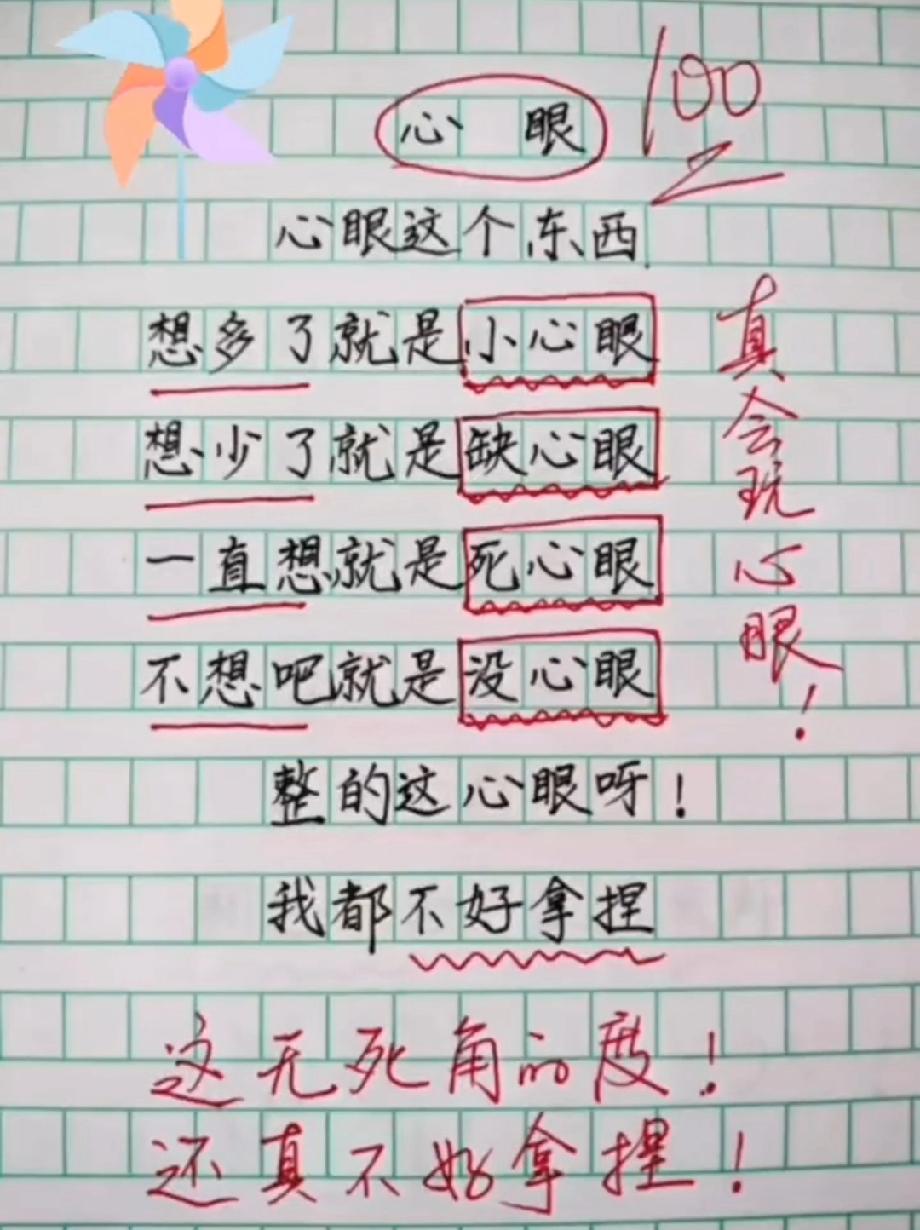 心眼
100
心眼这个东西
想多了就是小心眼
想少了就是缺心眼
一直想就是死心眼
不想吧就是没心眼
真会玩心眼！
整的这心眼呀！
我都不好拿捏
这无死角的度！
还真不好拿捏！